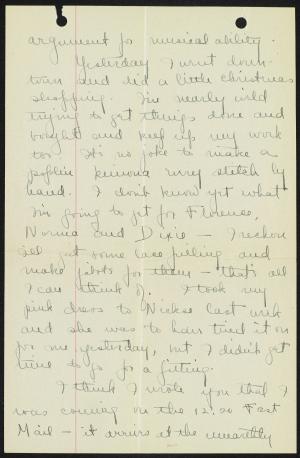 argument for musical ability.
Yesterday I went down-
town and did a little christmas
shopping. I'm nearly wild
trying to get things done and
bought and keep up my work
too. It's no joke to make a
poplin kimona every stitch by
hand. I don't know yet what
I'm going to get for Florence,
Norma and Dixie – I reckon
I'll get some lace filling and
make jabots for them – that's all
I can think of. I took my
pink dress to Nickse last week
and she was to have tried it on
for me yesterday, but I didn't get
time to go for a fitting.
I think I wrote you that I
was coming on the 12:20 Fast
Mail – it arrives at the unearthly